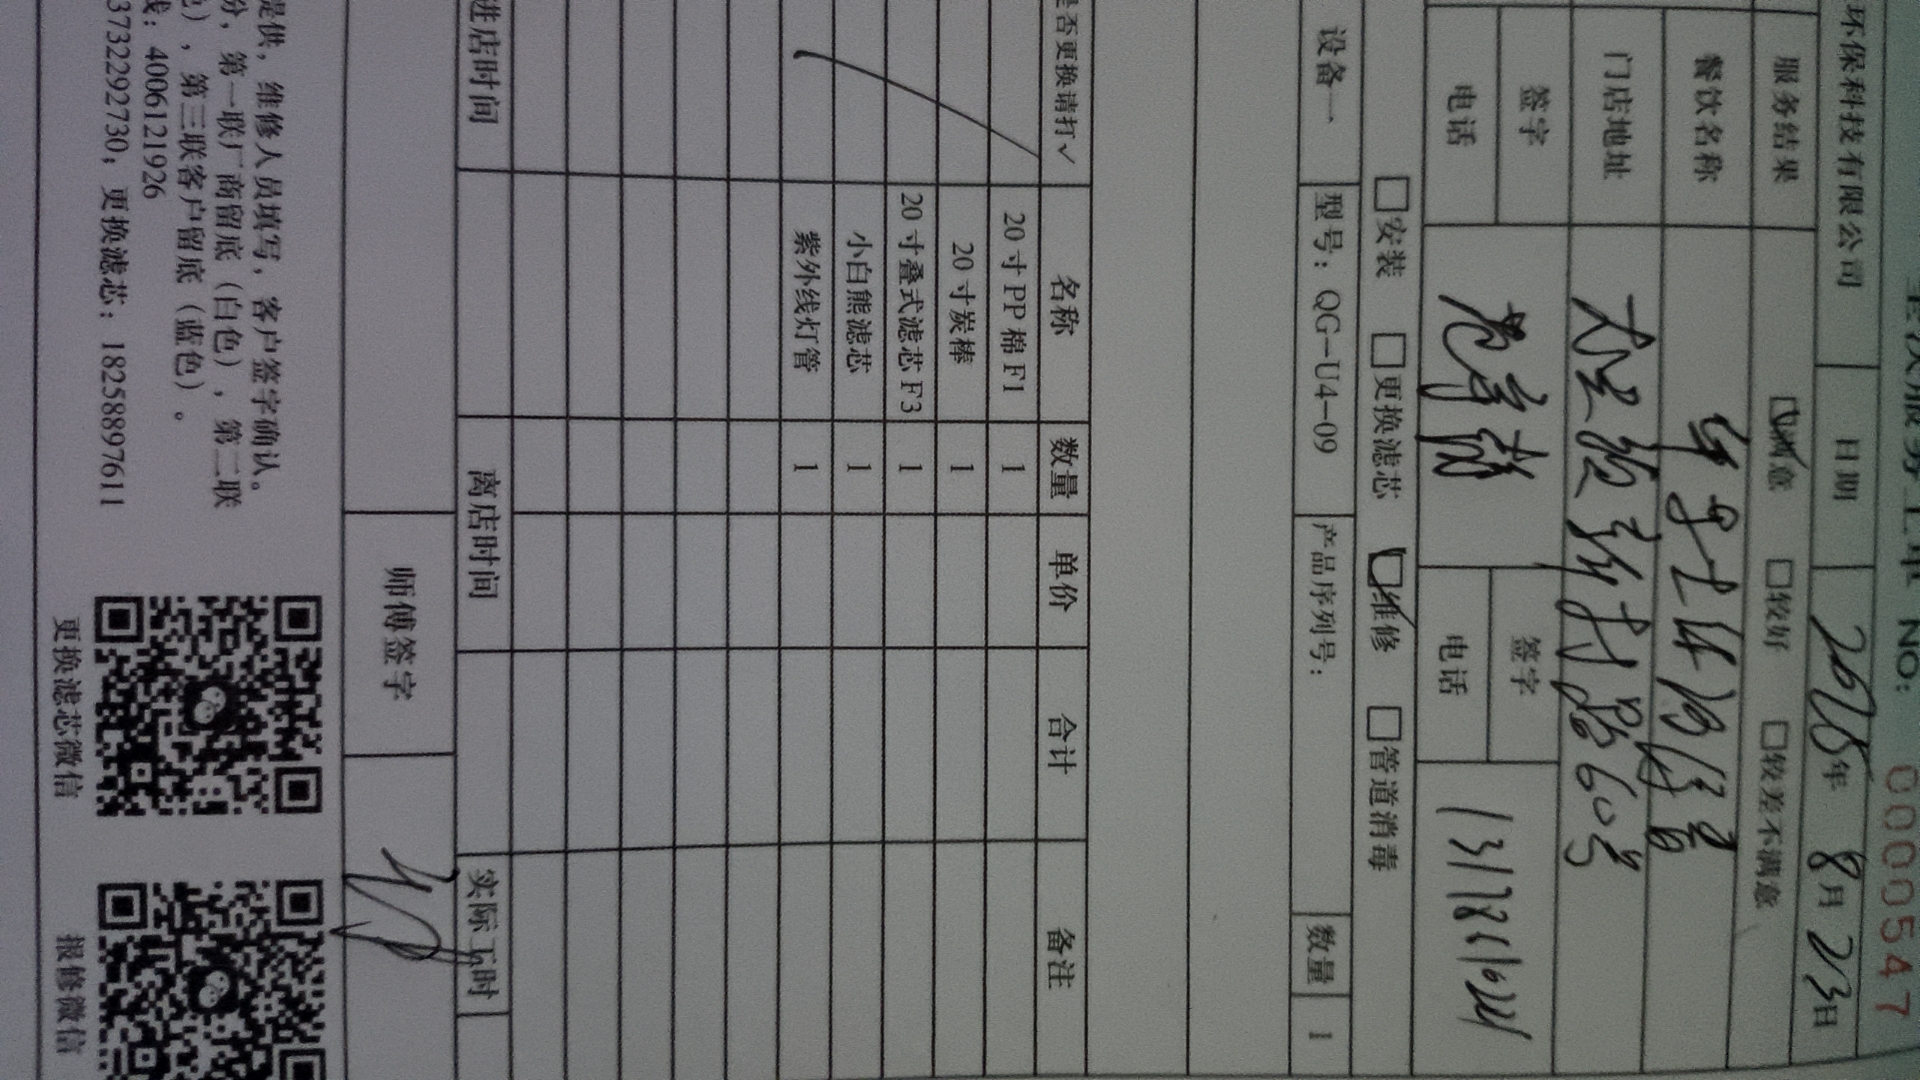 NO: 00005447
环保科技有限公司 日期 2025年 8月 23日
服务结果 满意 □较好 □较差不满意
餐饮名称
门店地址 60号
签字 签字
电话 电话
□安装 □更换滤芯 维修 □管道消毒
设备一 型号: QG-U4-09 产品序列号: 数量 1
是否更换请打✓ 名称 数量 单价 合计 备注
20寸PP棉F1 1
20寸炭棒 1
20寸叠式滤芯F3 1
小白熊滤芯 1
紫外线灯管 1
进店时间 离店时间 实际工时
师傅签字
提供，维修人员填写，客户签字确认。
份，第一联厂商留底（白色），第二联
色），第三联客户留底（蓝色）。
线: 4006121926
3732292730，更换滤芯: 18258897611
更换滤芯微信 报修微信